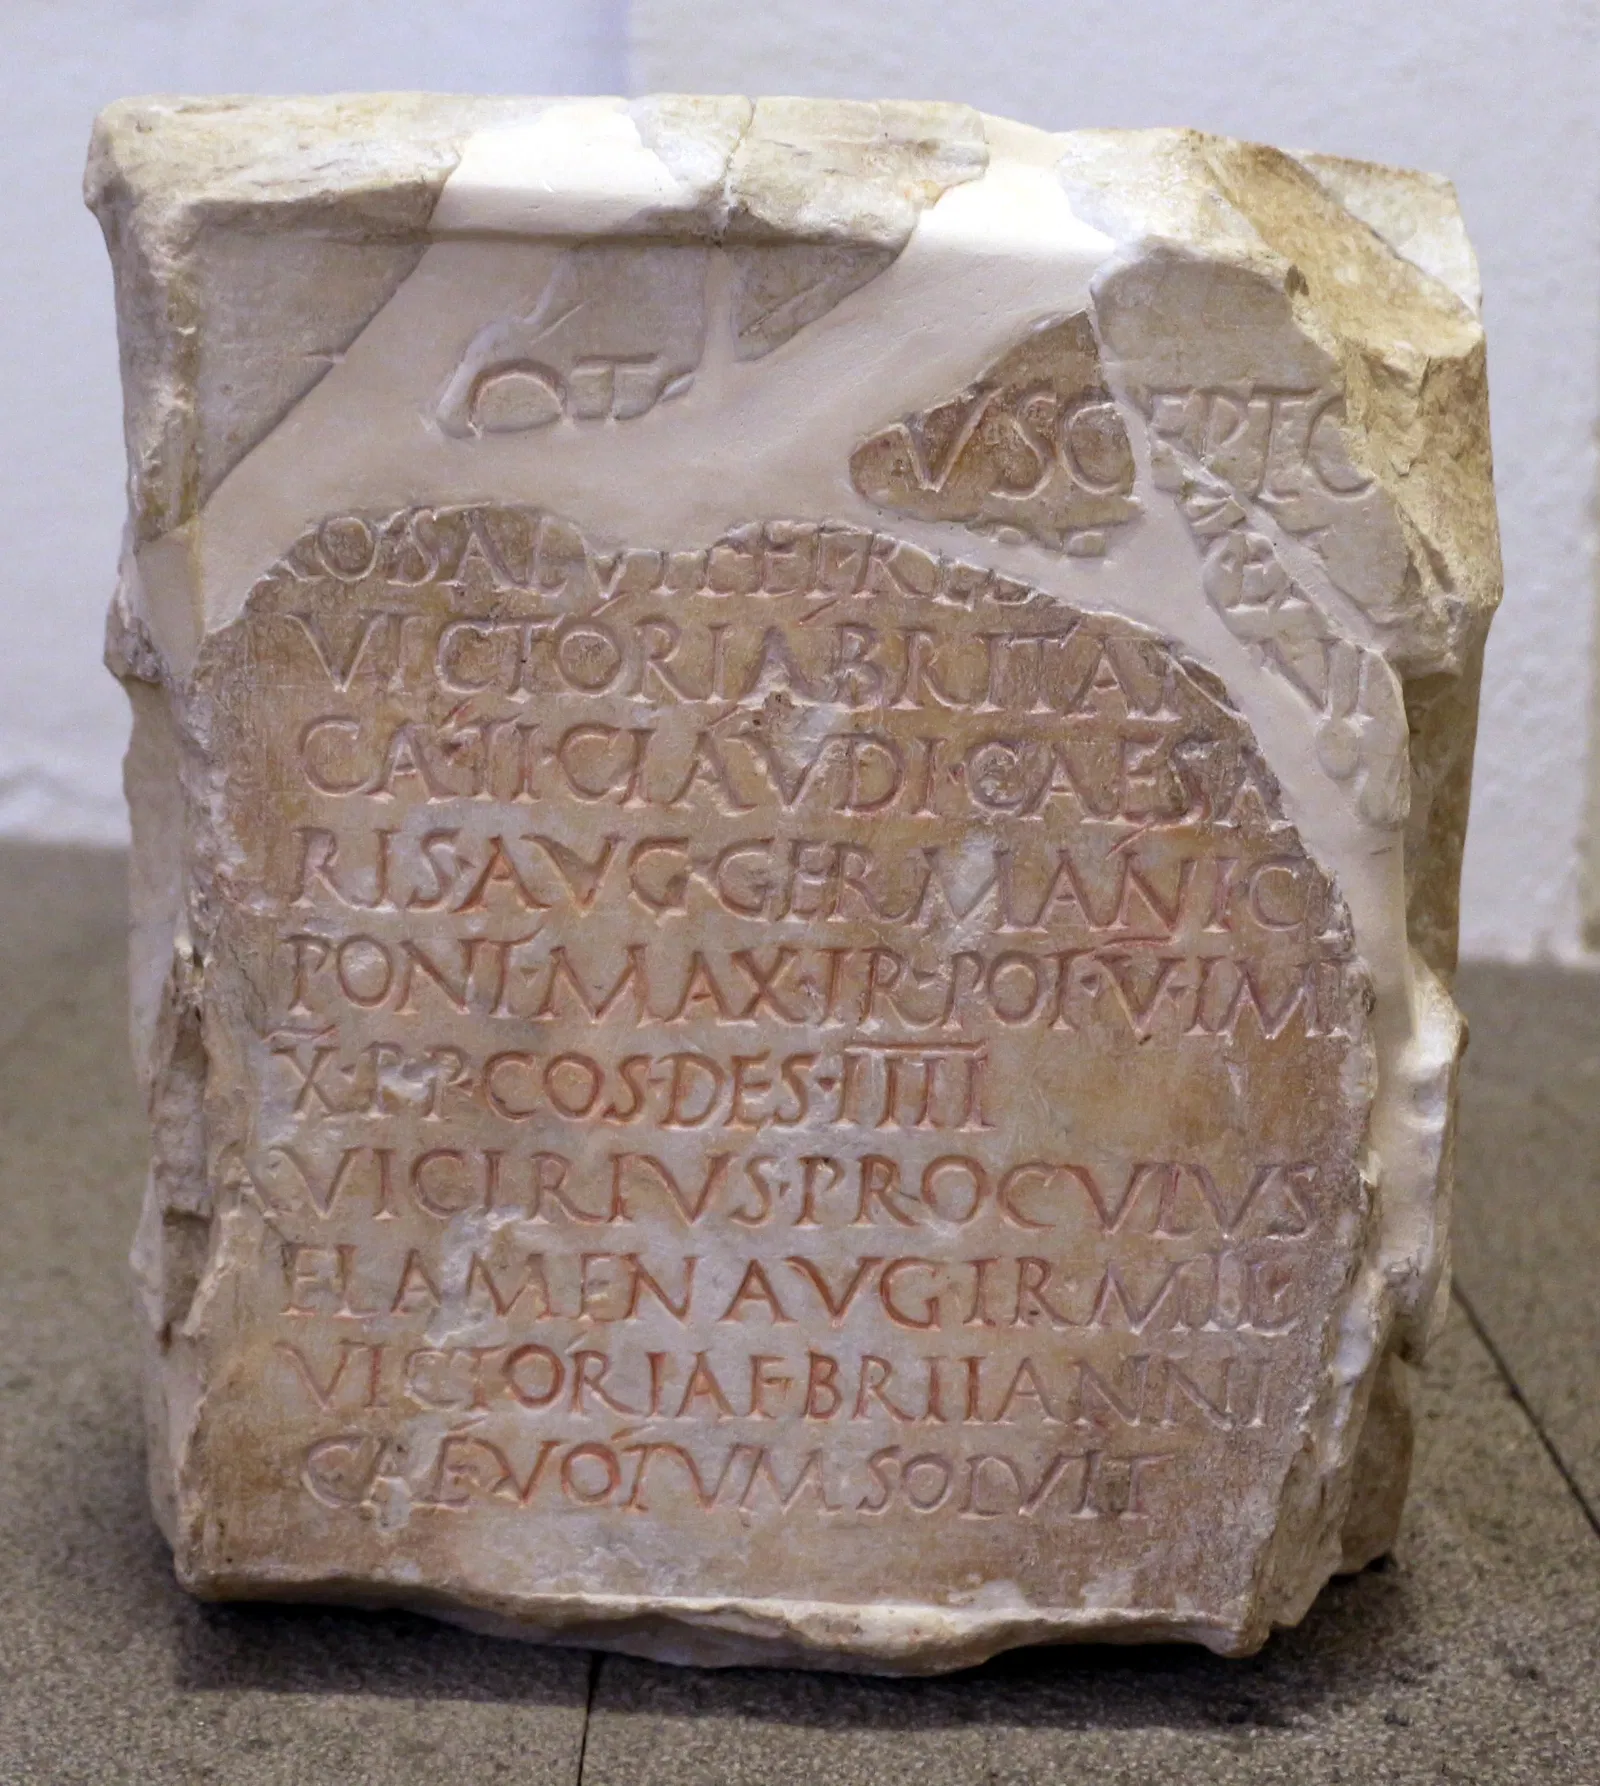 OTO USCEPTO
RO SALUTE ET REDI
VICTÓRIÁ BRITANNI
CÁ TI·CLÁUDI·CAESA
RIS·AUG·GERMÁNICI
PONT·MAX·TR·POT·V·IMP
X·P·P·COS·DES·IIII
A VICIRIUS·PROCULUS
FLAMEN AUG TR·MIL
VICTÓRIAE BRITANNI
CAE VÓTUM SOLVIT